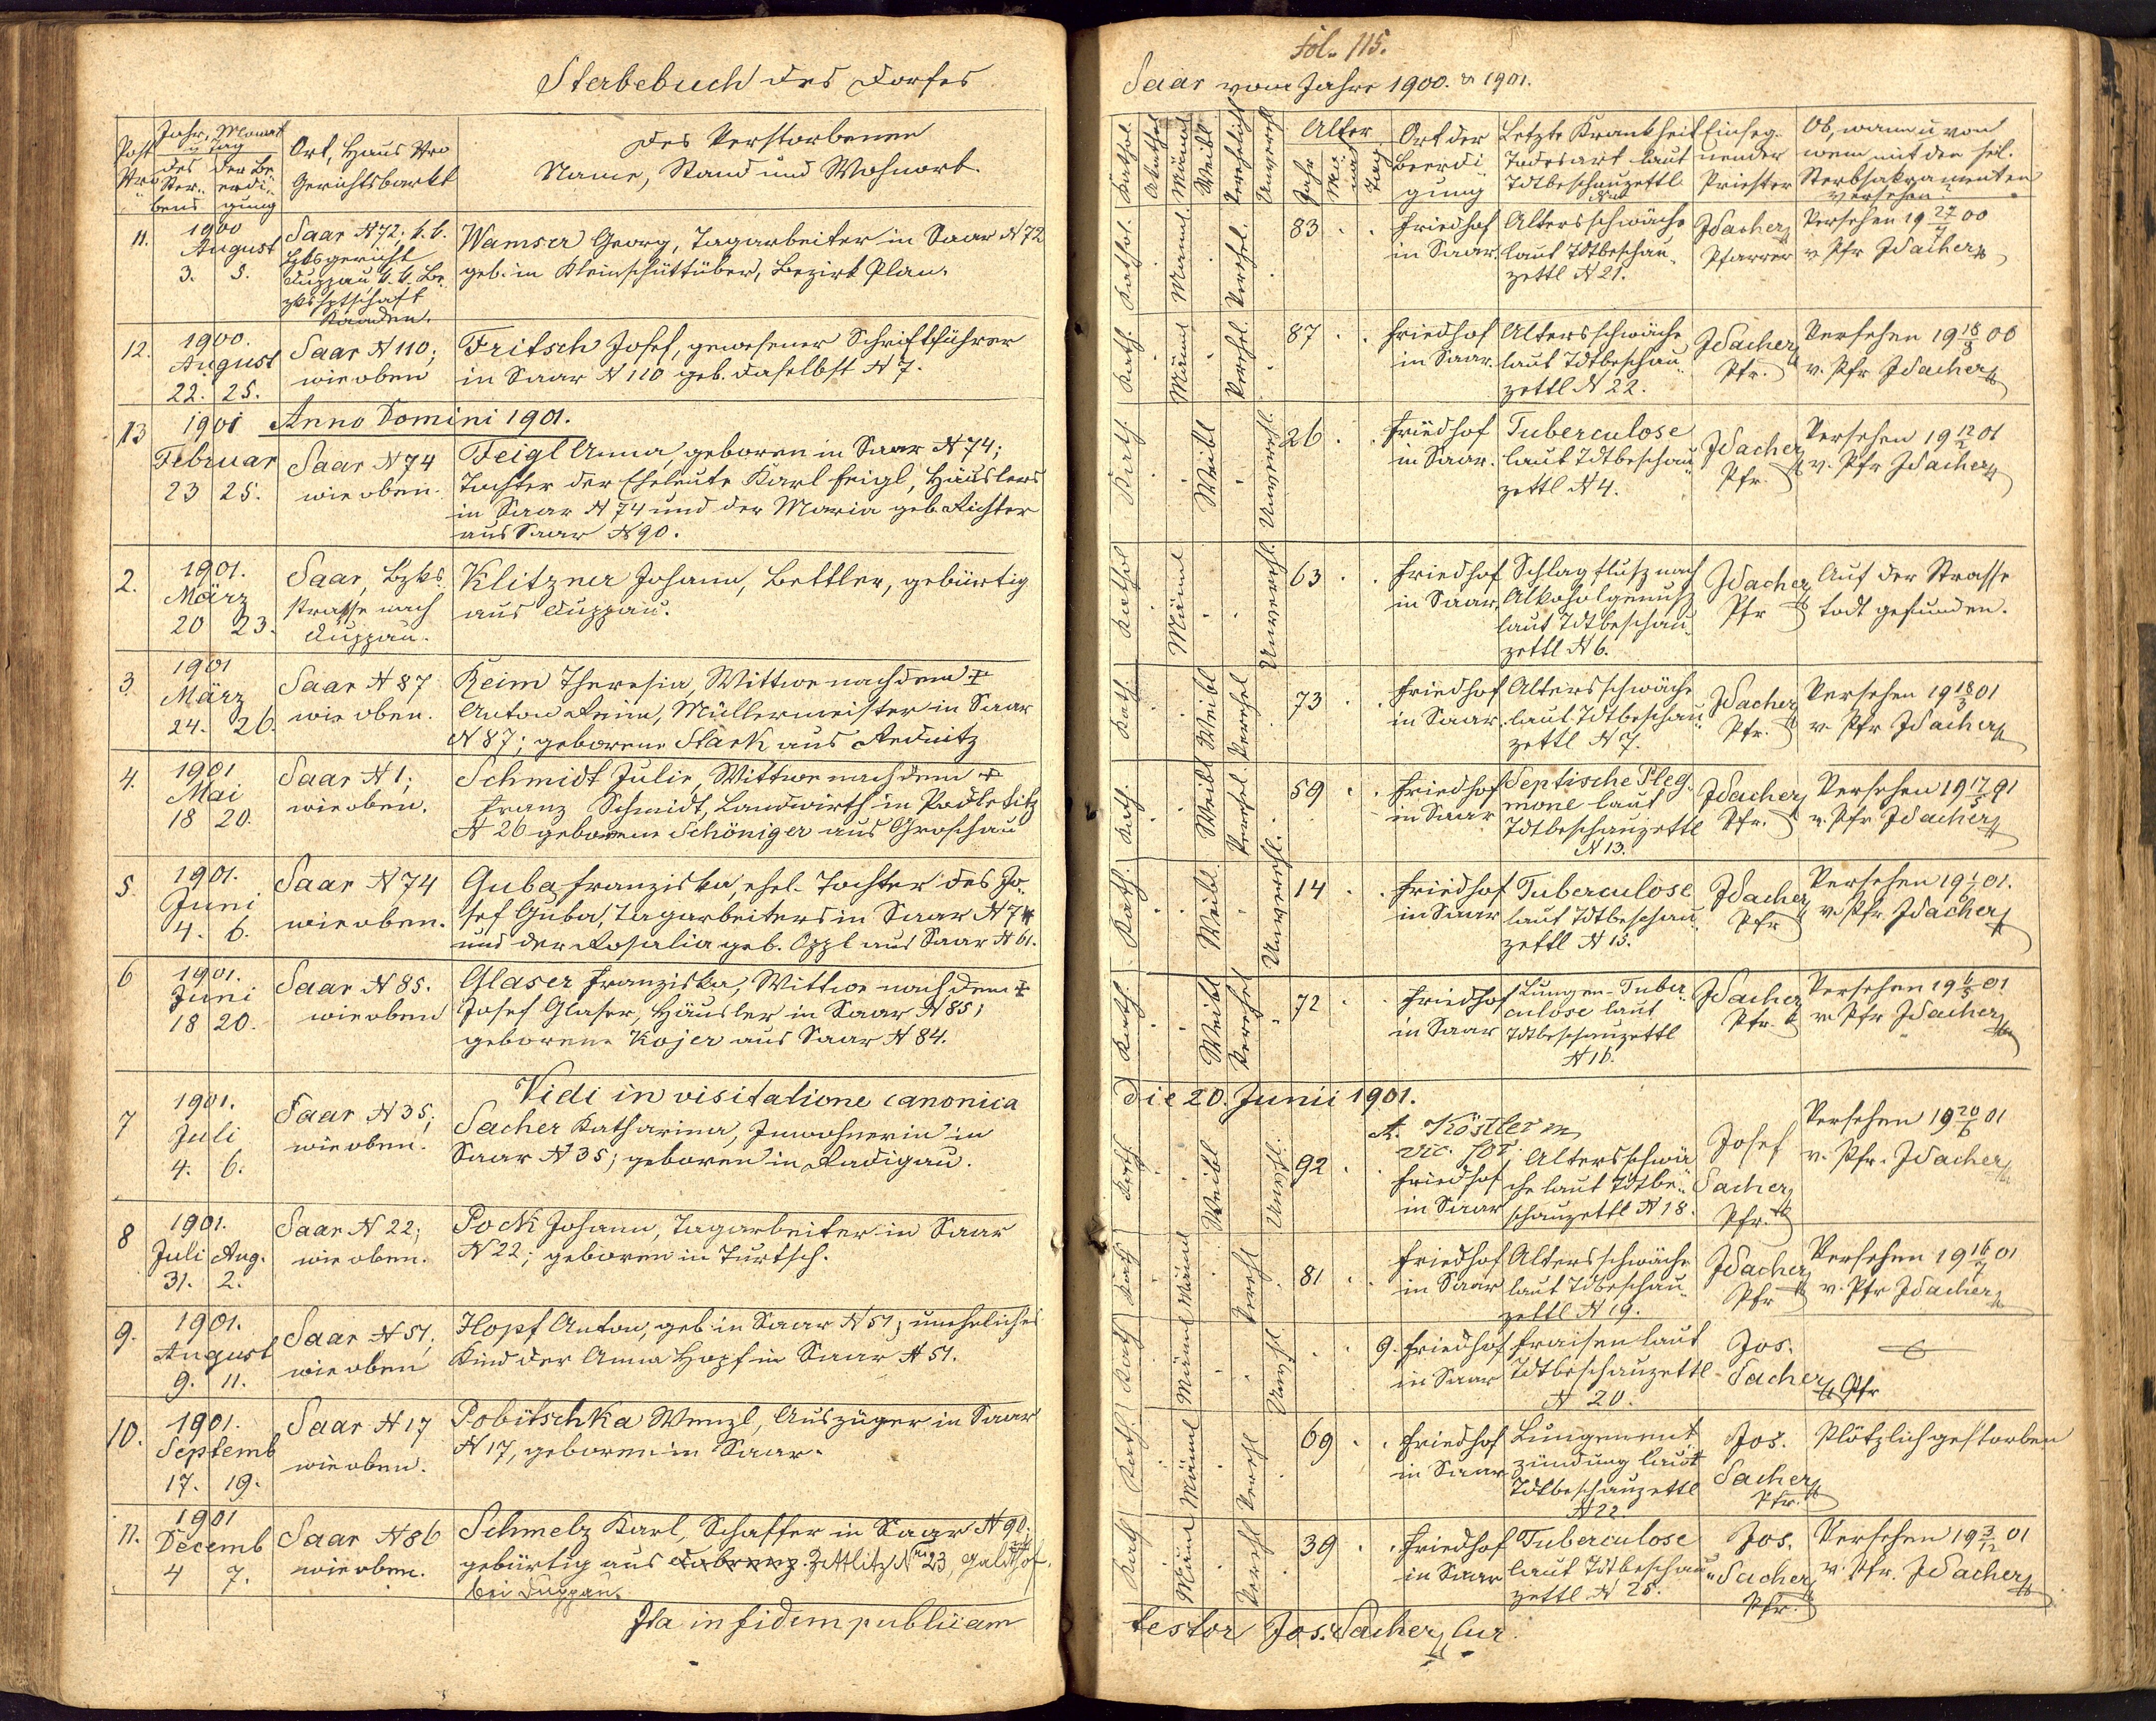 Sterbebuch des Dorfes
Post Nro
Jahr, Monat u Tag
des Sterbens
der Beerdigung
Ort, Haus Nro
Gerichtsbarkt
Des Verstorbenen
Name, Stand und Wohnort.
11.
1900
August
3. 5.
Saar N 72. k. k.
Bzksgericht
Duppau k. k. Be-
zkshptschaft
Kaaden.
Wamser Georg, Tagarbeiter in Saar N 72
geb. in Kleinschüttüber, Bezirk Plan.
12.
1900.
August
22. 25.
Saar N 110;
wie oben
Fritsch Josef, gewesener Schriftführer
in Saar N 110 geb. daselbst N 7.
Anno Domini 1901.
13
1901
Februar
23 25.
Saar N 74
wie oben.
Feigl Anna, geboren in Saar N 74;
Tochter der Eheleute Karl Feigl, Häuslers
in Saar N 74 und der Maria geb. Richter
aus Saar N 90.
2.
1901.
März
20 23.
Saar, Bzks
strasse nach
Duppau.
Klitzner Johann, Bettler, gebürtig
aus Duppau.
3.
1901
März
24. 26.
Saar N 87
wie oben.
Keim Theresia, Wittwe nach dem +
Anton Keim, Müllermeister in Saar
N 87; geborene Stark aus Rednitz
4.
1901
Mai
18 20.
Saar N 1;
wie oben.
Schmidt Julie, Wittwe nach dem +
Franz Schmidt, Landwirth in Podletitz
N 26 geborene Schöniger aus Groschau
5.
1901.
Juni
4. 6.
Saar N 74
wie oben.
Guba Franziska, ehel. Tochter des Jo-
sef Guba, Tagarbeiters in Saar N 74
und der Rosalia geb. Oppl aus Saar N 61.
6
1901.
Juni
18 20.
Saar N 85.
wie oben
Glaser Franziska, Wittwe nach dem +
Josef Glaser, Häusler in Saar N 85;
geborene Kojer aus Saar N 84.
Vidi in visitatione canonica
7
1901.
Juli
4. 6.
Saar N 35;
wie oben.
Sacher Katharina, Inwohnerin in
Saar N 35; geboren in Radigau.
8
1901.
Juli Aug.
31. 2.
Saar N 22;
wie oben.
Pock Johann, Tagarbeiter in Saar
N 22; geboren in Turtsch.
9.
1901.
August
9. 11.
Saar N 51.
wie oben
Hopf Anton, geb. in Saar N 51; uneheliches
Kind der Anna Hopf in Saar N 51.
10.
1901.
Septemb
17. 19.
Saar N 17
wie oben.
Pobitschka Wenzl, Auszüger in Saar
N 17, geboren in Saar.
11.
1901
Decemb
4 7.
Saar N 86
wie oben.
Schmelz Karl, Schaffer in Saar N 90;
gebürtig aus Zettlitz Nro 23,
bei Duppau.
Ita in fidem publicam
fol. 115.
Saar vom Jahre 1900. & 1901.
Kathol.
Akathol
Männl
Weibl
Verehelicht
Unverehl
Alter
Jahr
Monat
Tag
Ort der
Beerdi-
gung
Letzte Krankheit
Todesart laut
Tdtbeschauzettl
Einseg-
nender
Priester
Ob, wann u von
wem mit den hl.
Sterbsakramenten
versehen
Kathol. Männl. Verehel.
83
Friedhof
in Saar.
Altersschwäche
laut Tdtbeschau-
zettl N 21.
JSacher
Pfarrer
Versehen 19 27/7 00
v Pfr JSacher
Kath. Männl Verehel.
87
Friedhof
in Saar.
Altersschwäche
laut Tdtbeschau-
zettl N 22.
JSacher
Pfr.
Versehen 19 18/8 00
v. Pfr JSacher
Kath. Weibl Unverehl.
26
Friedhof
in Saar.
Tuberculose
laut Tdtbeschau
zettl N 4.
JSacher
Pfr.
Versehen 19 12/2 01
v. Pfr JSacher
Kathol Männl Unverehl.
63
Friedhof
in Saar.
Schlagflusz nach
Alkoholgenusz
laut Tdtbeschau-
zettl N 6.
JSacher
Pfr
Auf der Strasse
todt gefunden.
Kath. Weibl Verehel
73
Friedhof
in Saar.
Altersschwäche
laut Tdtbeschau
zettl N 7.
JSacher
Pfr.
Versehen 19 18/3 01
v. Pfr JSacher
Kath. Weibl Verehel
59
Friedhof
in Saar
Septische Pleg-
mone laut
Tdtbeschauzettl
N 13.
JSacher
Pfr.
Versehen 19 17/5 91
v. Pfr JSacher
Kath. Weibl. Unverehl.
14
Friedhof
in Saar
Tuberculose
laut Tdtbeschau-
zettl N 15.
JSacher
Pfr
Versehen 19 1/6 01.
v. Pfr. JSacher
Kath. Weibl Verehel
72
Friedhof
in Saar
Lungen-Tuber-
culose laut
Tdtbeschauzettl
N 16.
JSacher
Pfr.
Versehen 19 6/5 01
v. Pfr JSacher
die 20. Junii 1901.
A. Köstler
vic. for.
Kath. Weibl Unvehl.
92
Friedhof
in Saar
Altersschwä
che laut Tdtbe-
schauzettl N 18.
Josef
Sacher
Pfr.
Versehen 19 20/6 01
v. Pfr. JSacher
Kath Männl Verehl
81
Friedhof
in Saar
Altersschwäche
laut Tdbeschau-
zettl N 19.
JSacher
Pfr
Versehen 19 16/7 01
v. Pfr JSacher
Kath Männl Unvehl
9.
Friedhof
in Saar
Fraisen laut
Tdtbeschauzettl
N 20.
Jos.
Sacher Pfr
Kath. Männl Verehl
69
Friedhof
in Saar
Lungenent
zündung laut
Tdtbeschauzettl
N 22
Jos.
Sacher
Pfr.
Plötzlich gestorben
Kath Männl Verehl
39
Friedhof
in Saar
Tuberculose
laut Tdtbeschau-
zettl N 25.
Jos.
Sacher
Pfr.
Versehen 19 3/12 01
v. Pfr. JSacher
testor Jos. Sacher, Cur